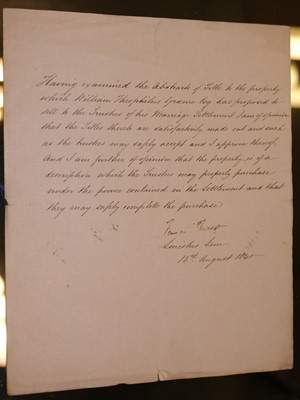 Having examined the Abstracts of Title to the property
which William Theophilus Graves Esq has proposed to
sell to the Trustees of his Marriage Settlement I am of opinion
that the Titles thereto are satisfactorily made out and such
as the trustees may safely accept and I approve thereof,
and I am further of opinion that the property is of a
description which the Trustees may properly purchase
under the power contained in the Settlement and that
they may safely complete the purchase
Lincolns Inn
August